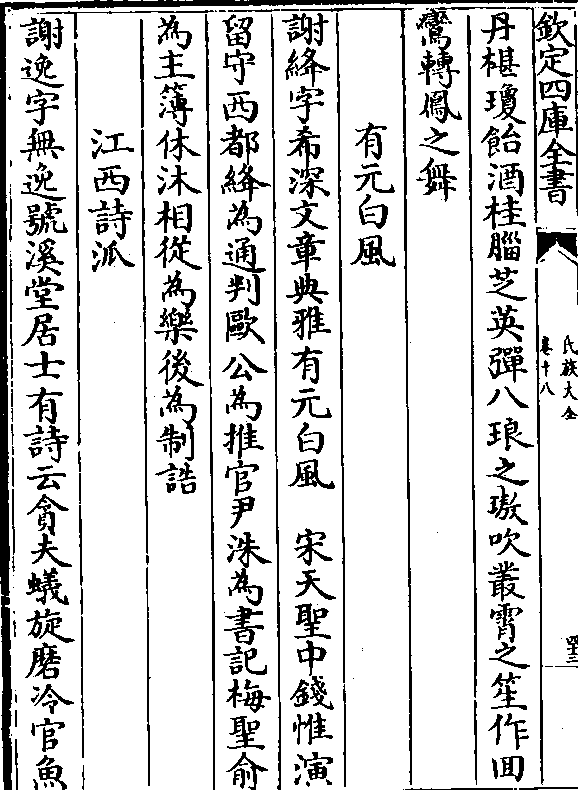 欽定四庫全書
氏族大全
卷十八
四十三
丹椹瓊飴酒桂腦芝英彈八琅之璈吹叢霄之笙作回
鸞轉鳳之舞
有元白風
謝絳字希深文章典雅有元白風　宋天聖中錢惟演
留守西都絳為通判歐公為推官尹洙為書記梅聖俞
為主簿休沐相從為樂後為制誥
江西詩派
謝逸字無逸號溪堂居士有詩云貪夫蟻旋磨冷官魚